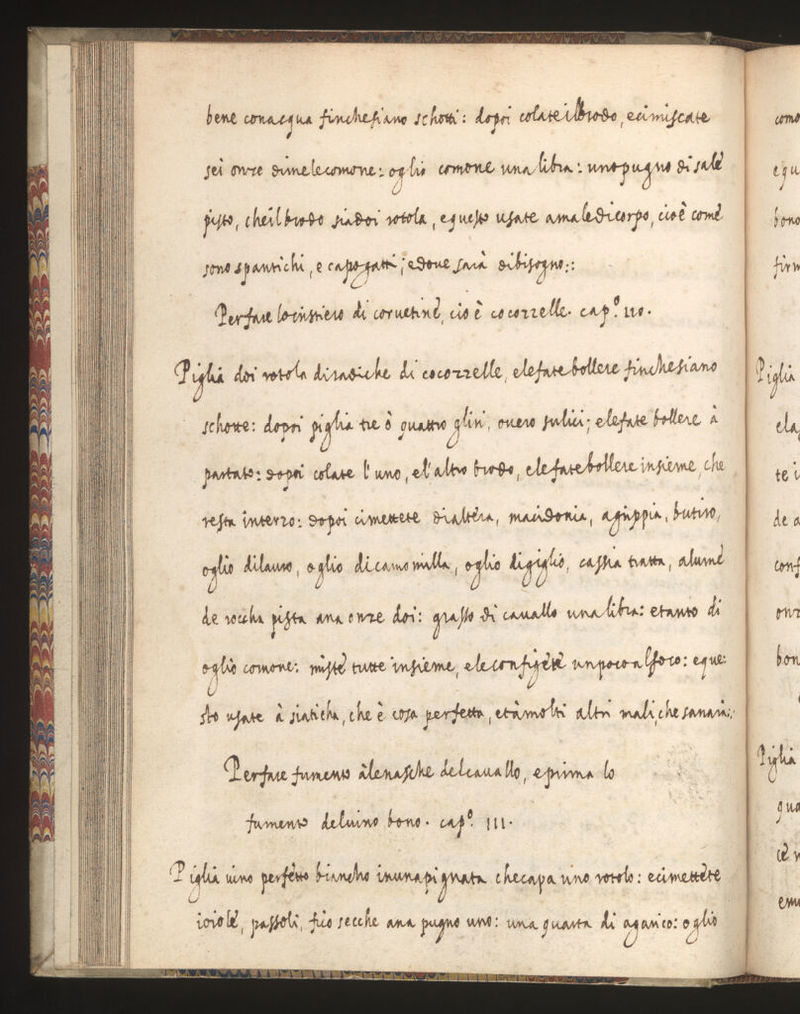 bene conacqua finchesiano schotti: dopoi colateilbrodo, ecimiscate
sei onze dimelecomone: oglio comone una libra: unopugno di salé
pisto, cheilbrodo siadoi rotola, equesto usate amaledicorpo, cioè comé
sono spantichi, e capogatti; edoue sarà dibisogno:
Perfare lo cristiero di coruetiné, cioè cocozzelle. cap.º 110.
Piglia doi rotola diradiche di cocozzelle, elefatebollere finchesiano
schotte: dopoi piglia tre ò quattro glini, ouero sulici; elefate bollere à
partato: dopoi colate l'uno, el'altro brodo, elefatebollere insieme, che
resta interzo: dopoi cimettete dialtéra, macidonia, agrippia, butiro,
oglio dilauro, oglio dicamomilla, oglio digiglió, cassia tratta, alumé
de roccha pista ana onze doi: grasso di cauallo una libra: etanto di
oglio comone: misté tutte insieme, eleconfigété unpocoalfoco: eque:
sto usate à siaticha, che è cosa perfetta, etàmolti altri mali, che sanarà:
Perfare fumento àlenasche delcauallo, eprima lo
fumento deluino bono. cap.º 111.
Piglia uino perfètto biancho inunapignata checapa uno rotolo: ecimettète
ioiolé, passoli, fico secche ana pugno uno: una quarta di agarico: oglio
como
equ
bono
firm
Piglia
ela
te i
de a
conf
onz
bon
Piglia
qua
cè
emu